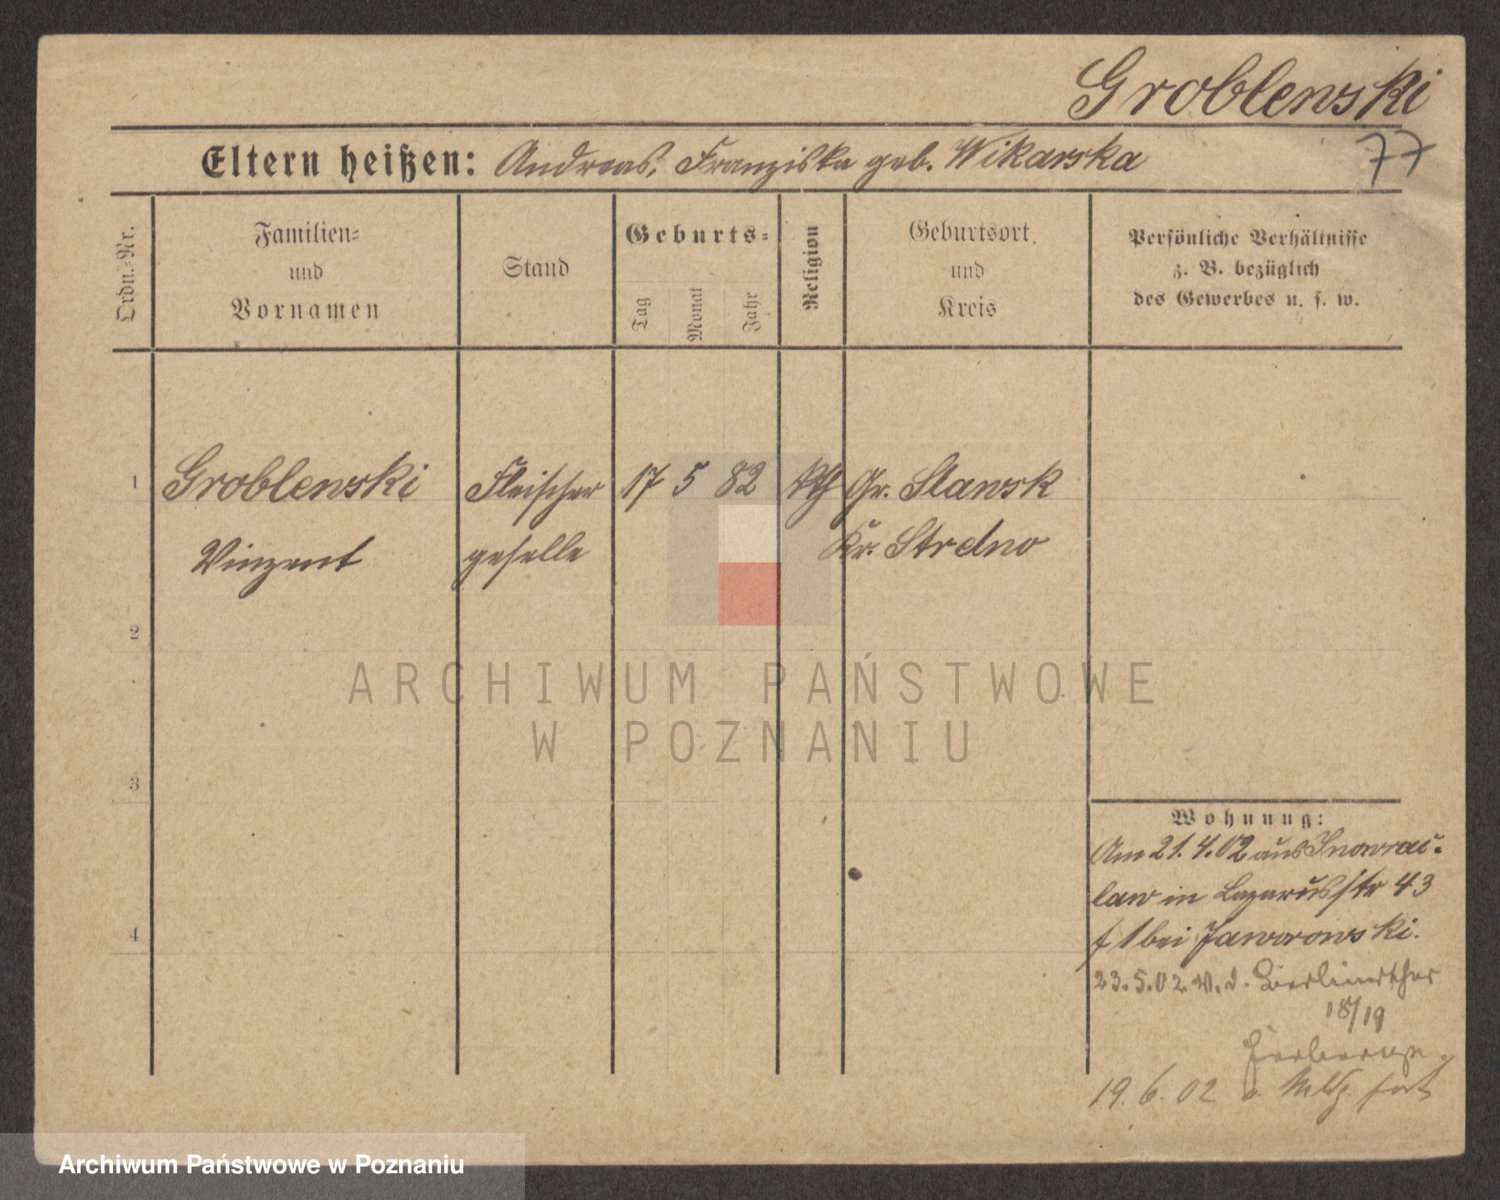 Groblewski
77
Eltern heißen: Andreas, Franziska geb. Wikarska
Ordn.-Nr.
Familien-
und
Vornamen
Stand
Geburts-
Tag
Monat
Jahr
Religion
Geburtsort
und
Kreis
Persönliche Verhältnisse
z. B. bezüglich
des Gewerbes u. s. w.
1
Groblewski
Vinzent
Fleischer
geselle
17 5 82
kth
Gr. Slawsk
Kr. Strelno
2
3
4
Wohnung:
Am 21.4.02 aus Inowraz-
law in Lazarusstr 43
1 bei Jaworowski.
23.5.02 Berlinerthor
18/19
Herberge
19.6.02 fort
ARCHIWUM PAŃSTWOWE
W POZNANIU
Archiwum Państwowe w Poznaniu